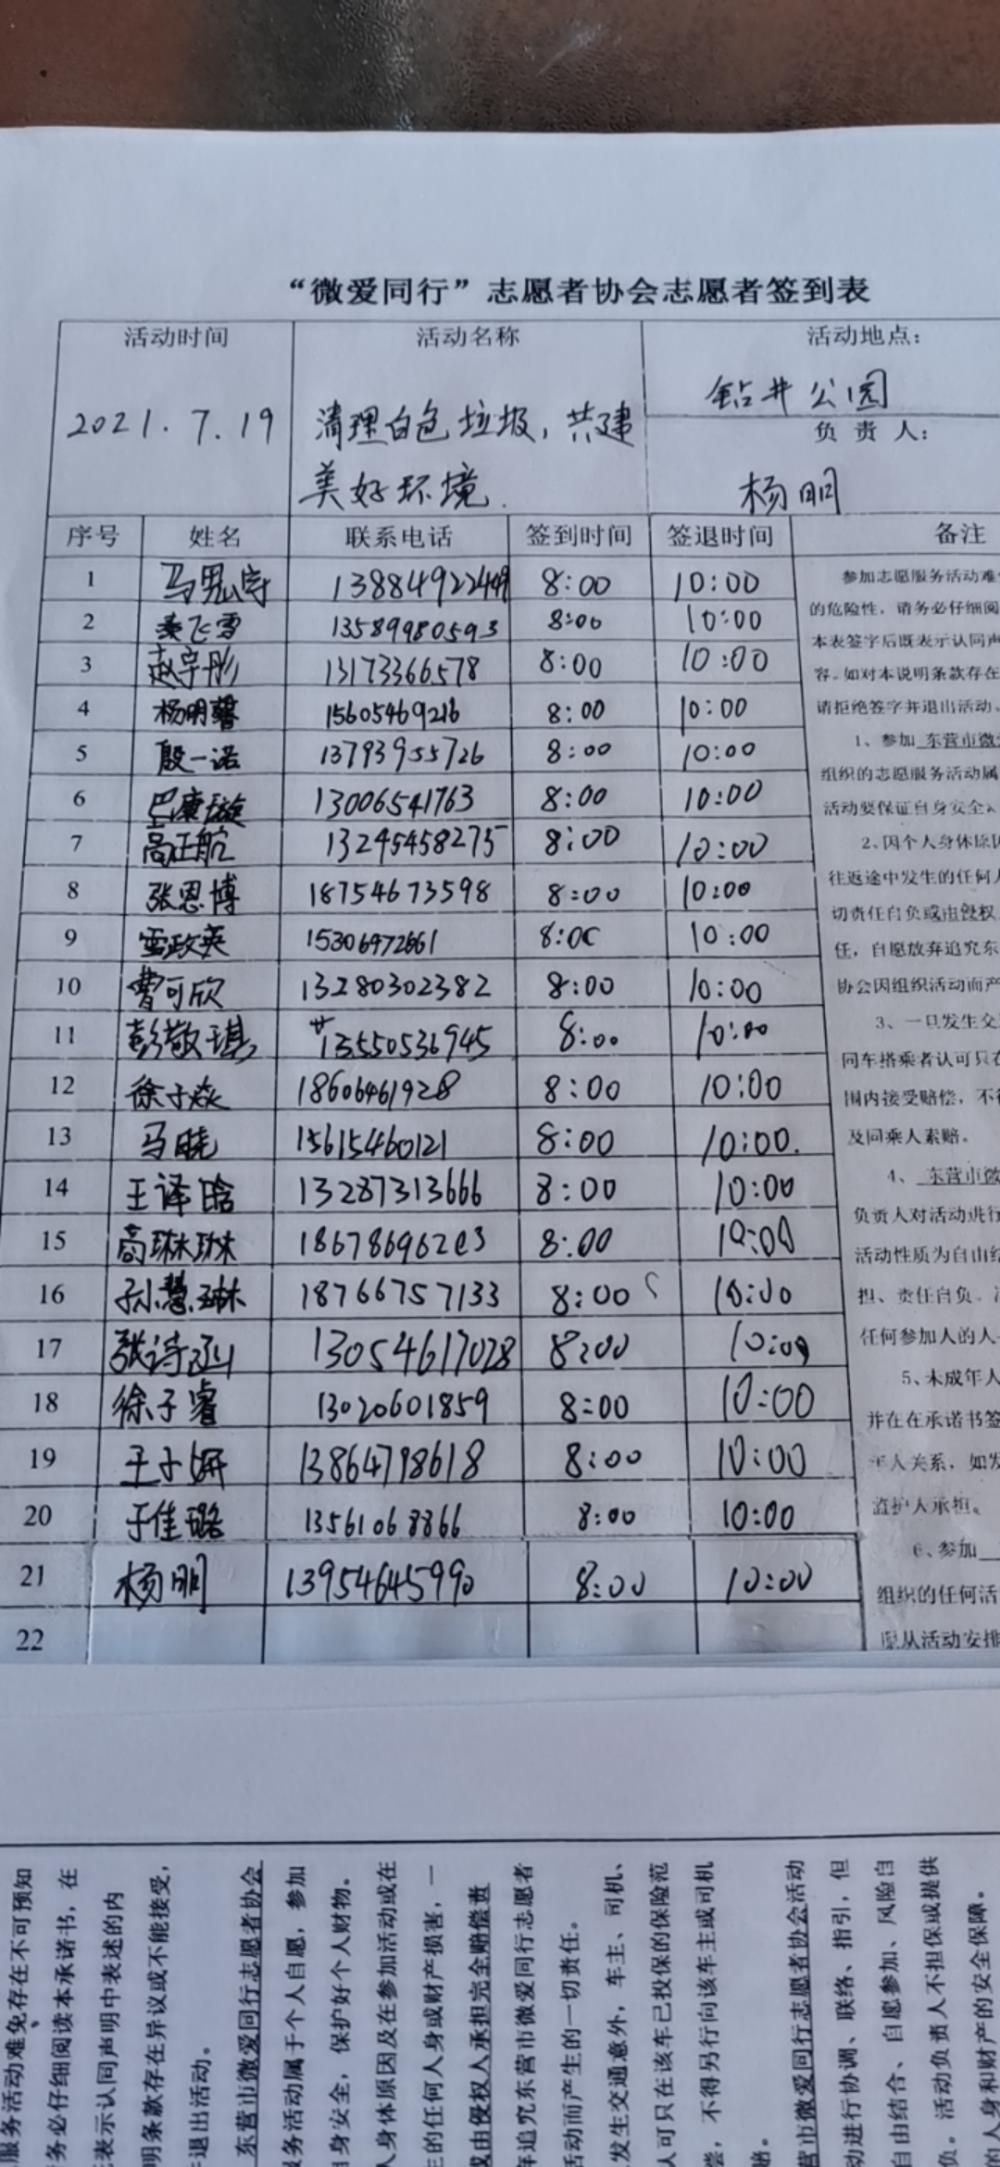 “微爱同行”志愿者协会志愿者签到表
活动时间 活动名称 活动地点：
钻井公园
2021.7.19 清理白色垃圾，共建 负 责 人：
美好环境. 杨明
序号 姓名 联系电话 签到时间 签退时间 备注
1 马思宇 13884922449 8:00 10:00
2 飞雪 13589980593 8:00 10:00
3 赵宇彤 13173366578 8:00 10:00
4 杨明馨 15605469216 8:00 10:00
5 殷一诺 13793955726 8:00 10:00
6 巴康璇 13006541763 8:00 10:00
7 高正航 13245458275 8:00 10:00
8 张恩博 18754673598 8:00 10:00
9 雷政英 15306472661 8:00 10:00
10 曹可欣 13280302382 8:00 10:00
11 彭敬琪 13550536945 8:00 10:00
12 徐子焱 18606461928 8:00 10:00
13 马晓 15615460121 8:00 10:00.
14 王译晗 13287313666 8:00 10:00
15 高琳琳 18678696203 8:00 10:00
16 孙慧琳 18766757133 8:00 10:00
17 张诗涵 13054617028 8:00 10:00
18 徐子睿 13020601859 8:00 10:00
19 王子妍 13864798618 8:00 10:00
20 于佳璐 13561068866 8:00 10:00
21 杨明 13954645990 8:00 10:00
22
参加志愿服务活动难
的危险性，请务必仔细阅
本表签字后既表示认同声
容。如对本说明条款存在
请拒绝签字并退出活动。
1、参加 东营市微
组织的志愿服务活动属
活动要保证自身安全
2、因个人身体原因
往返途中发生的任何人
切责任自负或由侵权
任，自愿放弃追究东
协会因组织活动而产
3、一旦发生交
同车搭乘者认可只在
围内接受赔偿，不
及同乘人索赔。
4、 东营市微
负责人对活动进行
活动性质为自由结
担、责任自负。
任何参加人的人
5、未成年人
并在在承诺书签
人关系，如发
监护人承担。
6、参加
组织的任何活
愿从活动安排
服务活动难免存在不可预知
务必仔细阅读本承诺书，在
表示认同声明中表述的内
明条款存在异议或不能接受，
退出活动。
东营市微爱同行志愿者协会
务活动属于个人自愿，参加
身安全，保护好个人财物。
人身体原因及在参加活动或在
生的任何人身或财产损害，一
或由侵权人承担完全赔偿责
弃追究东营市微爱同行志愿者
活动而产生的一切责任。
发生交通意外，车主、司机、
人可只在该车已投保的保险范
偿，不得另行向该车主或司机
赔。
营市微爱同行志愿者协会活动
动进行协调、联络、指引，但
自由结合、自愿参加、风险自
负。活动负责人不担保或提供
的人身和财产的安全保障。